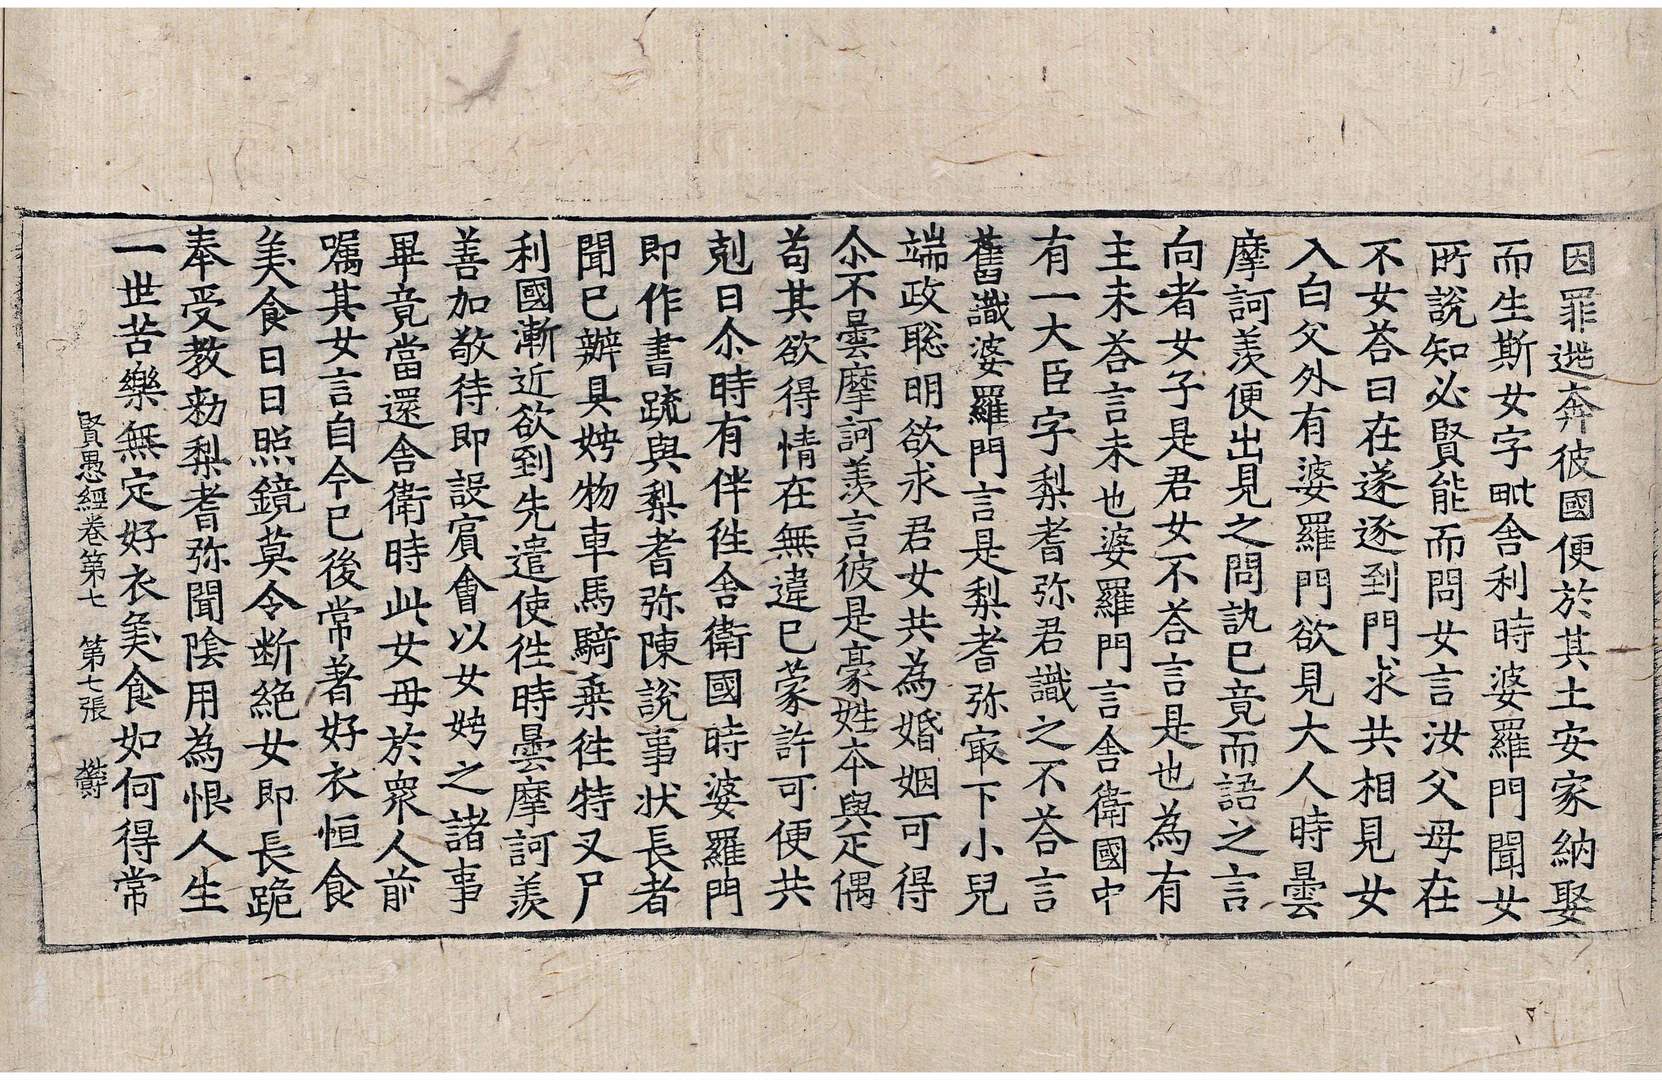 因罪逃奔彼國便於其土安家納娶
而生斯女字毗舍利時婆羅門聞女
所說知必賢能而問女言汝父母在
不女荅曰在遂逐到門求共相見女
入白父外有婆羅門欲見大人時曇
摩訶羨便出見之問訊已竟而語之言
向者女子是君女不荅言是也為有
主未荅言未也婆羅門言舍衛國中
有一大臣字梨耆弥君識之不荅言
舊識婆羅門言是梨耆弥冣下小兒
端政聡明欲求君女共為婚姻可得
尒不曇摩訶羨言彼是豪姓夲與疋偶
苟其欲得情在無違已蒙許可便共
剋日尒時有伴徃舍衛國時婆羅門
即作書䟽與梨耆弥陳說事状長者
聞已辦具娉物車馬騎乗徃特叉尸
利國漸近欲到先遣使徃時曇摩訶羨
善加敬待即設賔會以女娉之諸事
畢竟當還舍衛時此女母於衆人前
囑其女言自今已後常著好衣恒食
美食日日照鏡莫令断絶女即長跪
奉受教勑梨耆弥聞隂用為恨人生
一世苦樂無定好衣美食如何得常
賢愚經卷第七 第七張 欝